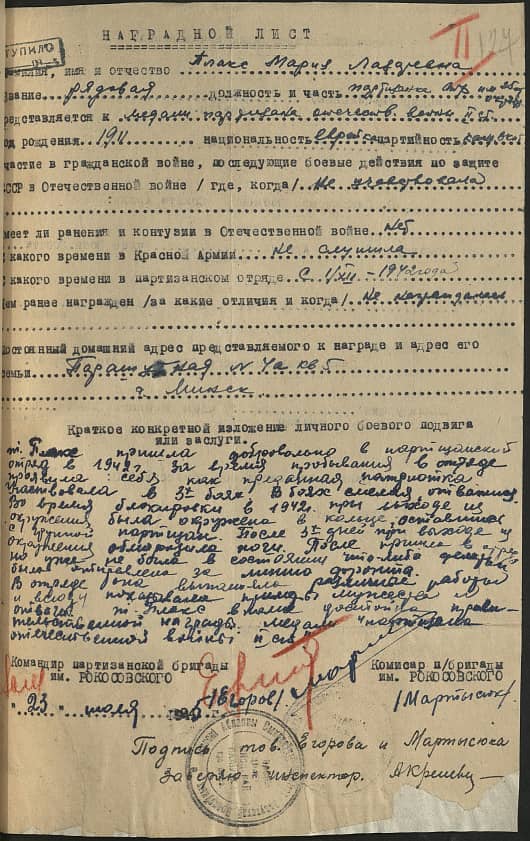 НАГРАДНОЙ ЛИСТ
ТУПИЛО
II
124
амилия, имя и отчество Плакс Мария
вание рядовая должность и часть партизанка
редставляется к медали партизана отечеств. войны II ст.
од рождения 1911 национальность еврейка партийность
частие в гражданской войне, последующие боевые действия по защите
ССР в Отечественной войне /где, когда/ Не участвовала
меет ли ранения и контузии в Отечественной войне Нет
какого времени в Красной Армии Не служила
с какого времени в партизанском отряде С 1/XII - 1942 года
ем ранее награжден /за какие отличия и когда/ Не награждалась
остоянный домашний адрес представляемого к награде и адрес его
емьи № 4а кв 5
г. Минск
Краткое конкретной изложение личного боевого подвига
или заслуги.
т. Плакс пришла добровольно в партизанский
отряд в 1942 г. За время пробывания в отряде
проявила себя как преданная патриотка.
Участвовала в 3х боях. В боях смелая, отважная.
Во время блокировки в 1942 г. при выходе из
окружения была окружена в кольце, оставшись
с группой партизан. После 5ти дней при выходе из
окружения обморозила ноги. После пришла в отряд
но уже не была в состоянии что либо делать
была отправлена за линию фронта.
В отряде она выполняла различные работы
и всюду показывала примеры мужества и
отваги. т. Плакс вполне достойна прави-
тельственной награды медали "партизана
отечественной войны II ст."
Командир партизанской бригады
им. РОКОСОВСКОГО
/Егоров/
Комисар п/бригады
им. РОКОСОВСКОГО
/Мартысюк/
"23" июля
Подпись тов. Егорова и Мартысюка
Заверяю инспектор.